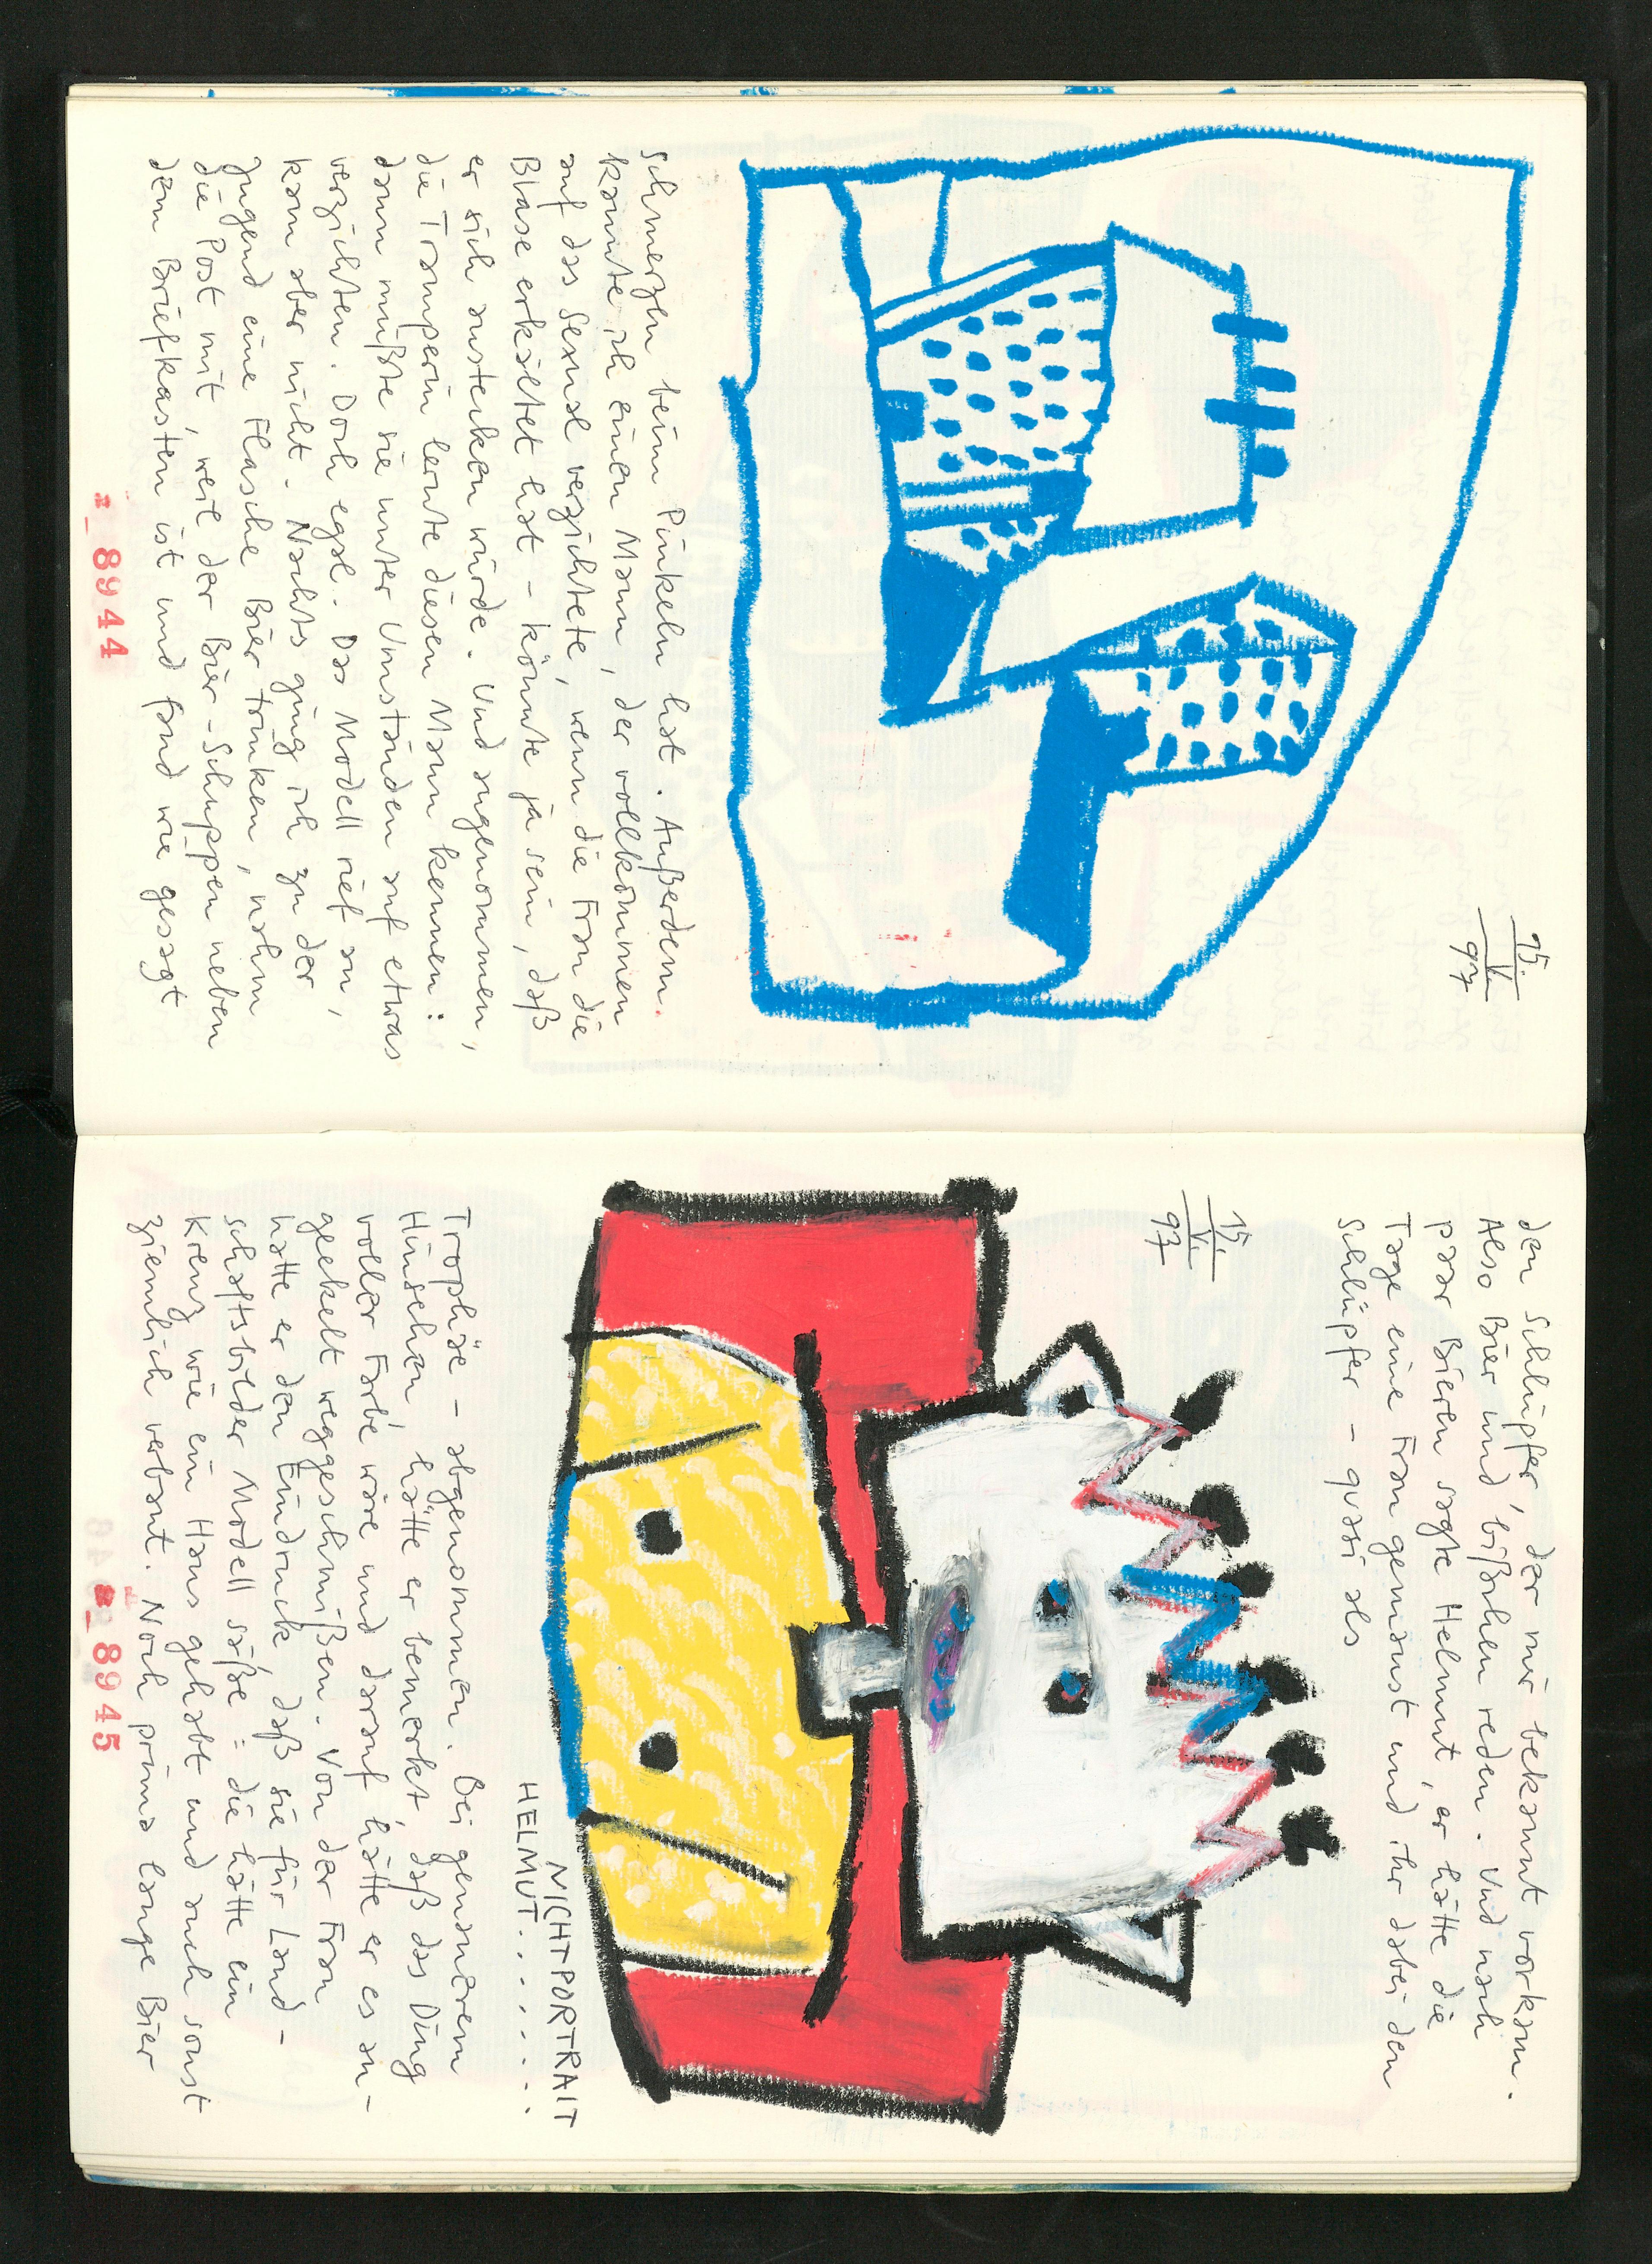 15.
VI.
97
Schmerzen beim Pinkeln hat. Außerdem
könnte ich einen Mann, der vollkommen
auf das Sexual verzichtete, wenn die Frau die
Blase erkältet hat - könnte ja sein, daß
er sich anstecken würde. Und angenommen,
die Tramperin lernte diesen Mann kennen:
dann müßte sie unter Umständen auf etwas
verzichten. Doch egal. Das Modell rief an,
kam aber nicht. Nachts ging ich zu der
Jugend eine Flasche Bier trinken, nahm
die Post mit, weil der Bier-Schuppen neben
dem Briefkasten ist und fand wie gesagt
8944
den Schlüpfer, der mir bekannt vorkam.
Also Bier und bißchen reden. Und nach
paar Bieren sagte Helmut, er hätte die
Tage eine Frau gemaust und ihr dabei den
Schlüpfer - quasi als
15.
VI.
97
NICHTPORTRAIT
HELMUT.......
Trophäe - abgenommen. Bei genauerem
Hinsehen, hätte er bemerkt, daß das Ding
voller Farbe wäre und darauf hätte er es an-
geekelt weggeschmißen. Von der Frau
hätte er den Eindruck, daß sie für Land-
schaftsbilder Modell säße: die hätte ein
Kreuz wie ein Haus gehabt und auch sonst
ziemlich verbaut. Noch prima lange Bier
8945